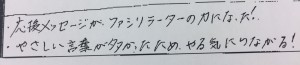 ・応援メッセージが、ファシリテーターの力になった！
・やさしい言葉が多かったため、やる気につながる！